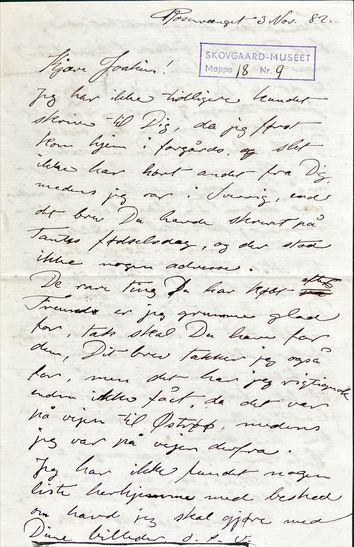 Rosenvænget 3 Nov. 82.
SKOVGAARD-MUSEET
Mappe 18 Nr. 9
Kjære Joakim!
Jeg har ikke tidligere kundet
skrive til Dig, da jeg først
kom hjem i forgårds, og slet
ikke har hørt andet fra Dig,
medens jeg var i Sverrig, end
det brev Du havde skrevet på
Tantes fødselsdag, og der stod
ikke nogen adresse.
De rare ting Du har købt
er jeg grumme glad
for, tak skal Du have for
dem, Dit brev takker jeg også
for, men det har jeg rigtignok
endnu ikke fåt, da det var
på vejen til, medens
jeg var på vejen derfra.
Jeg har ikke fundet nogen
liste herhjemme med besked
om hvad jeg skal gjøre med
Dine billeder o. s. v.